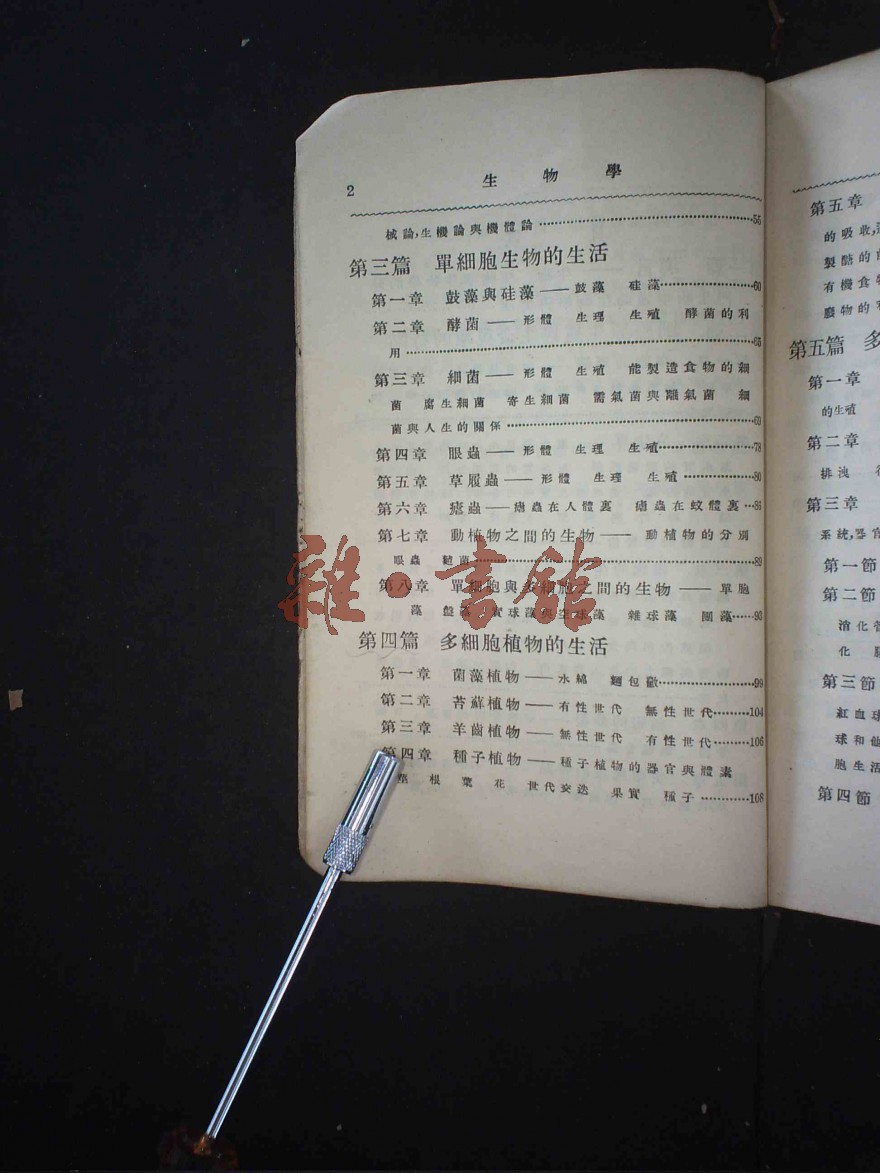 2 生物學
械論,生機論與機體論…56
第三篇 單細胞生物的生活
第一章 鼓藻與硅藻——鼓藻 硅藻…60
第二章 酵菌——形體 生理 生殖 酵菌的利
用…65
第三章 細菌——形體 生殖 能製造食物的細
菌 腐生細菌 寄生細菌 需氣菌與離氣菌 細
菌與人生的關係…69
第四章 眼蟲——形體 生理 生殖…78
第五章 草履蟲——形體 生理 生殖…80
第六章 瘧蟲——瘧蟲在人體裏 瘧蟲在蚊體裏…83
第七章 動植物之間的生物——動植物的分別
眼蟲 黏菌…89
第八章 單細胞與多細胞之間的生物——單胞
藻 盤藻 實球藻與空球藻 雜球藻 團藻…93
第四篇 多細胞植物的生活
第一章 菌藻植物——水綿 麵包黴…99
第二章 苔蘚植物——有性世代 無性世代…104
第三章 羊齒植物——無性世代 有性世代…106
第四章 種子植物——種子植物的器官與體素
莖 根 葉 花 世代交迭 果實 種子…108
第五章
的吸收,
製醣的
有機食物
廢物的
第五篇 多
第一章
的生殖
第二章
排洩
第三章
系統,器官
第一節
第二節
消化
化
第三節
紅血球
球和
胞生活
第四節
雜·書館